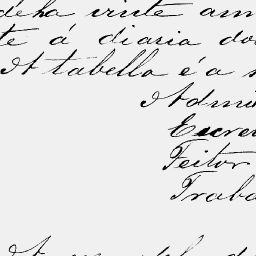 vinte am
te á diaria do
A tabella é a
Admi
Escre
Feitor
Traba